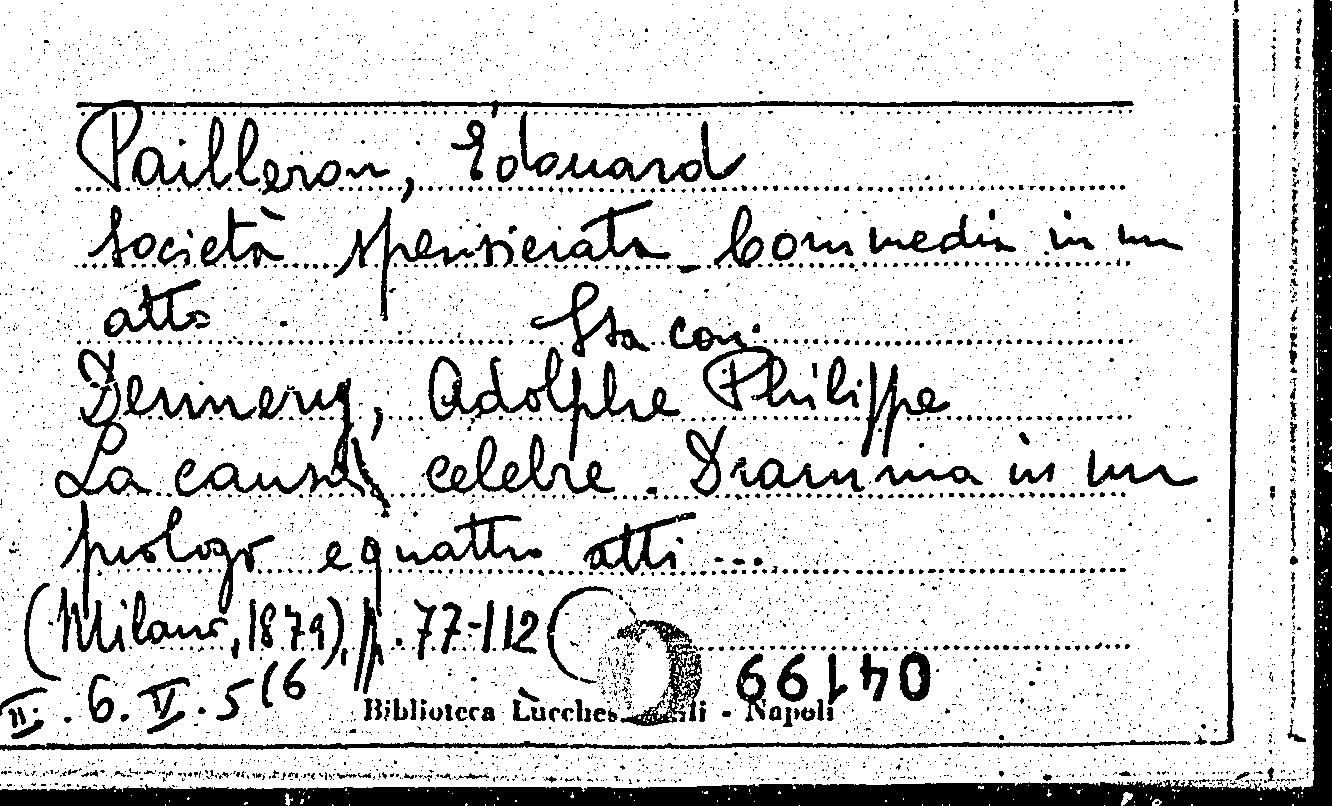 Pailleron, Édouard
Società spensierata. Commedia in un
atto. Sta con:
Dennery, Adolphe Philippe
La causa celebre. Dramma in un
prologo e quattro atti ...
(Milano, 1879), p. 77-112
II. 6. V. 5 (6
Biblioteca Lucchesi Palli - Napoli
04199